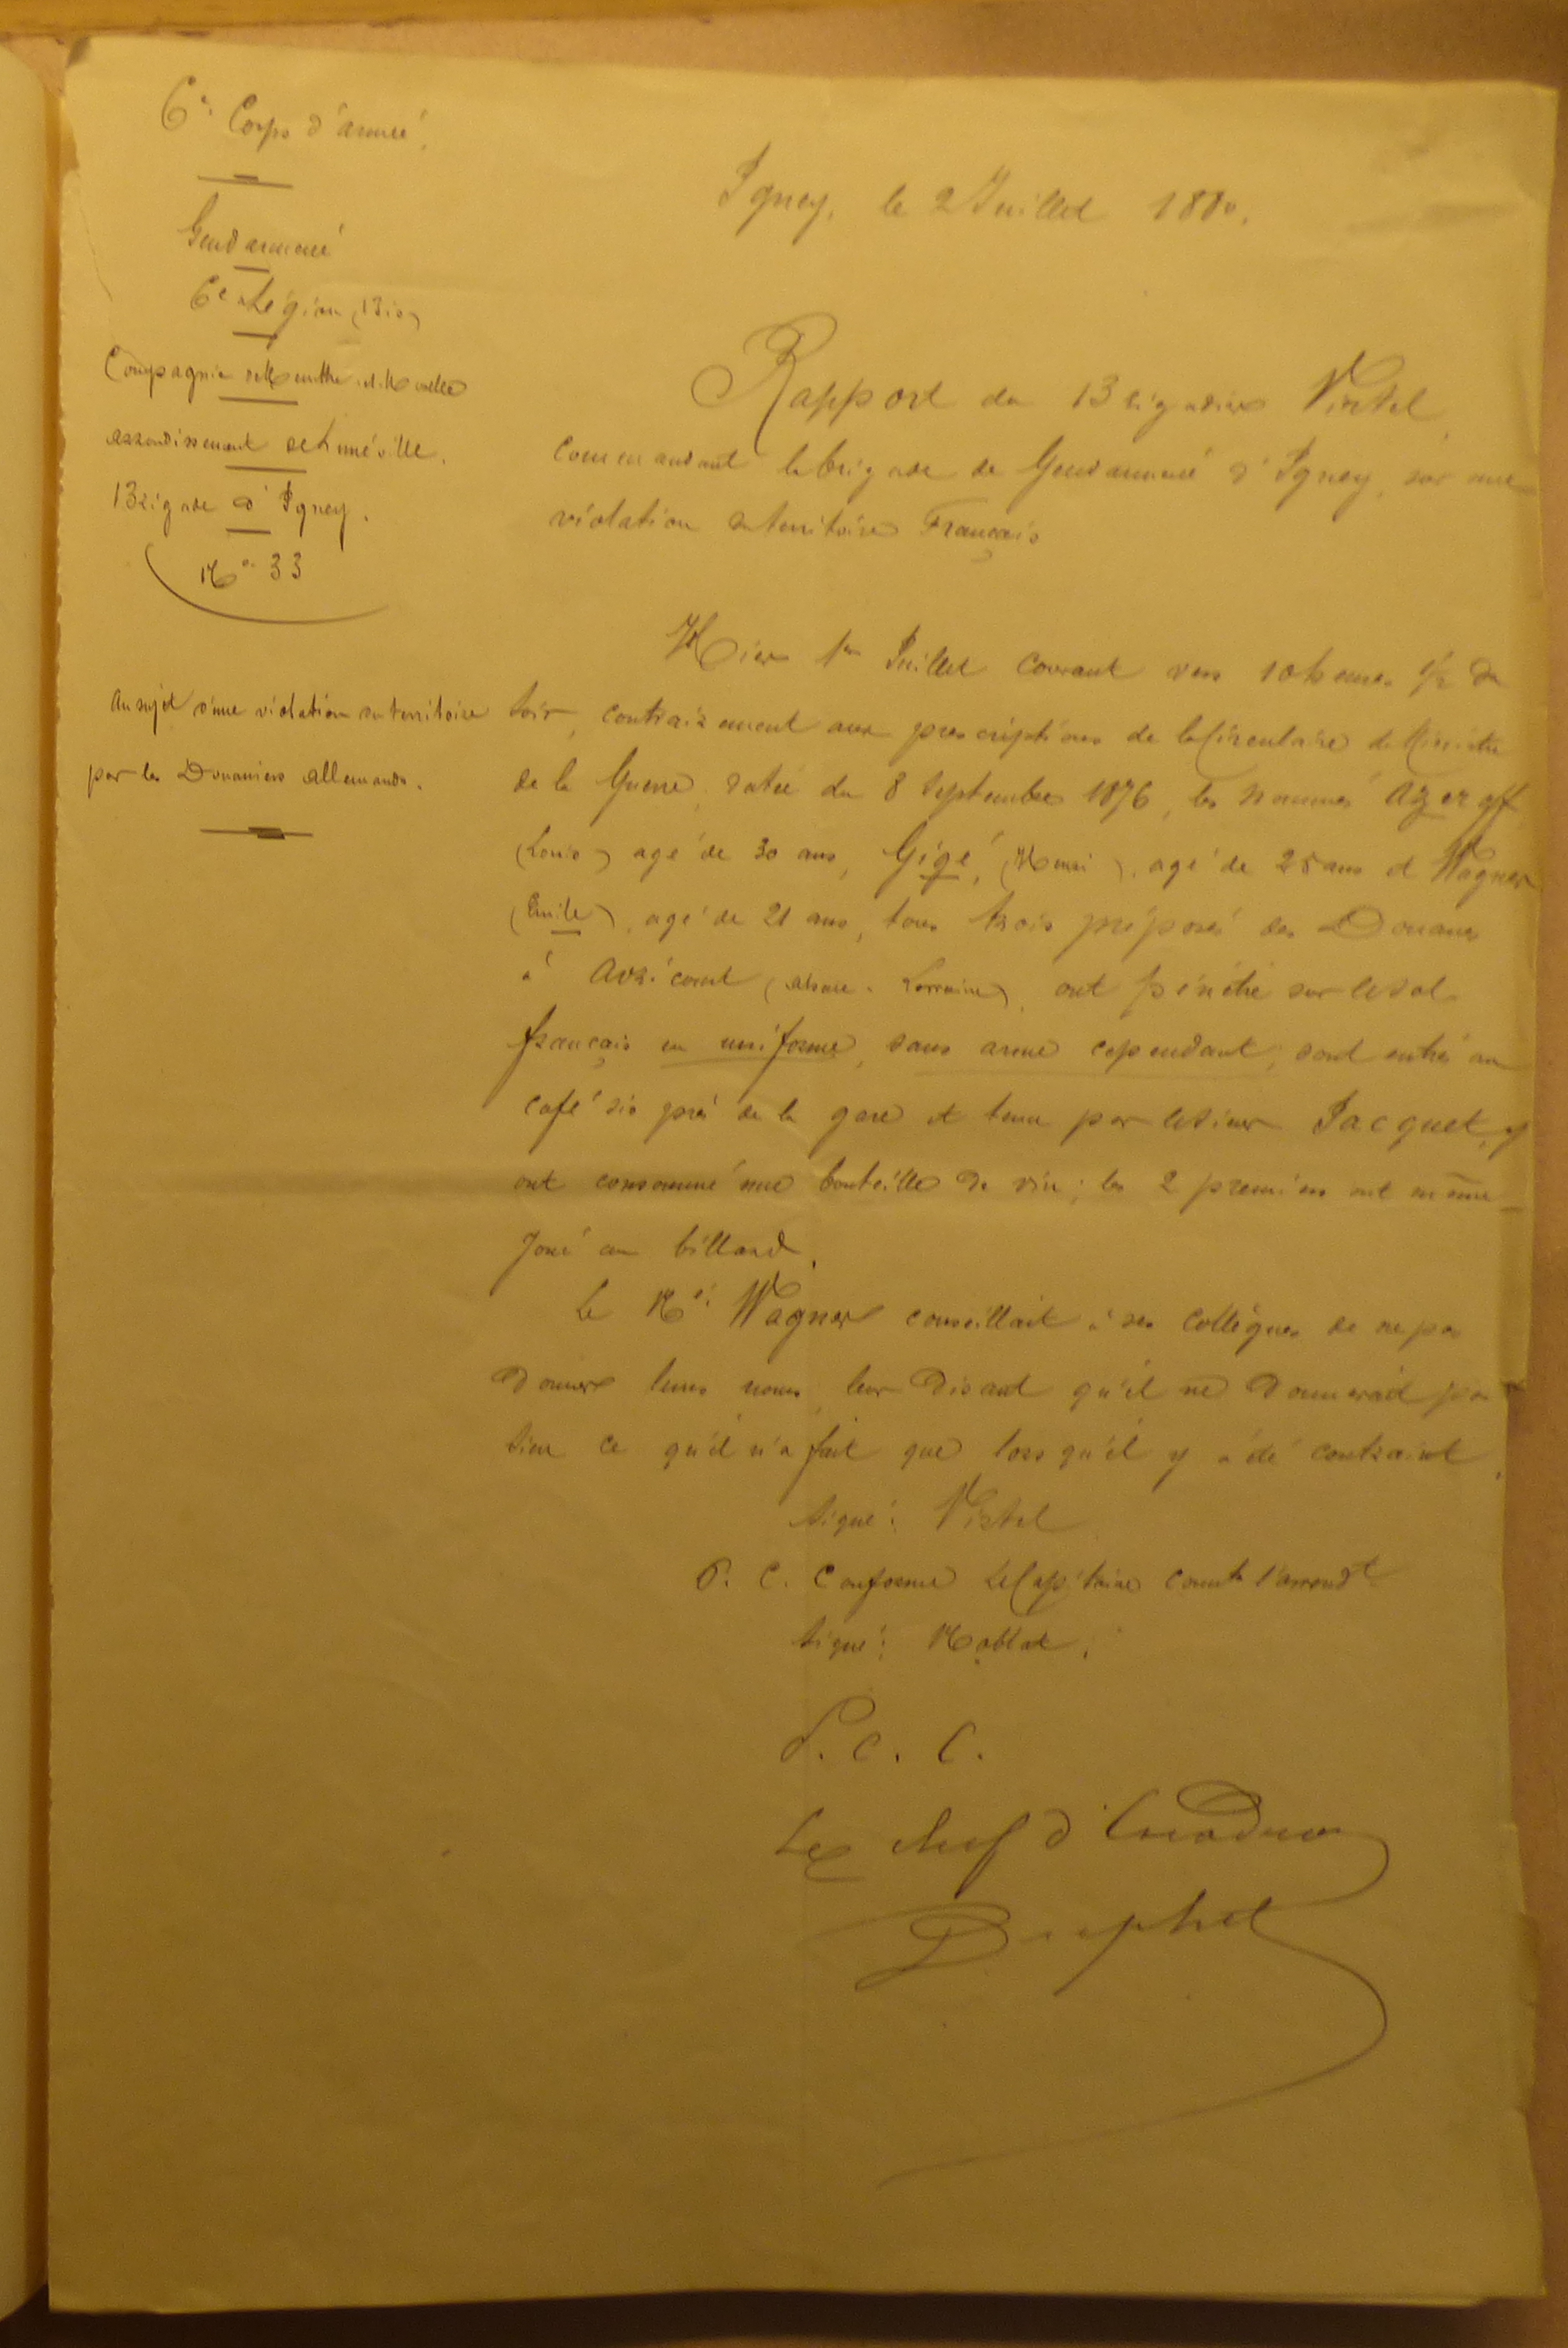 6e Corps d'armée.
Gendarmerie
6e Légion (Bis)
Compagnie de Meurthe et Moselle
arrondissement de Lunéville.
Brigade d'Igney.
No 33
au sujet d'une violation du territoire
par les Douaniers allemands.
Igney, le 2 Juillet 1880.
Rapport du Brigadier Virtel,
commandant la brigade de Gendarmerie d'Igney, sur une
violation du territoire Français
Hier 1er Juillet courant vers 10 heures 1/2 du
soir, contrairement aux prescriptions de la Circulaire du Ministre
de la Guerre, datée du 8 Septembre 1876, les nommés Azeroff
(Louis) agé de 30 ans, Gigé, (Henri), agé de 25 ans et Wagner
(Emile), agé de 21 ans, tous trois préposés des Douanes
à Avricourt (Alsace-Lorraine), ont pénétré sur le sol
français en uniforme, sans arme cependant, sont entrés au
café sis près de la gare et tenu par le sieur Jacquet, y
ont consommé une bouteille de vin; les 2 premiers ont même
joué au billard.
Le Né Wagner conseillait à ses collègues de ne pas
donner leurs noms, leur disant qu'il ne donnerait pas
sien ce qu'il n'a fait que lorsqu'il y a été contraint.
Signé: Virtel
P. C. Conforme Le Capitaine Commt l'arrondt
Signé:
P. C. C.
Le chef d'Escadron